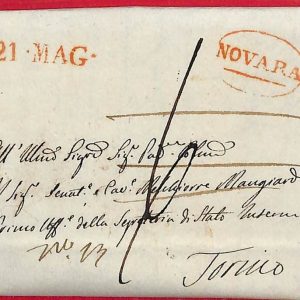 21 · MAG ·
NOVARA
All' Illmo Sigr Sigr Pad.ne
Il Sigr Senat.e e Cav.e Melchiorre Mangiard
Primo Uff.e della Segreteria di Stato Interne
N.o 13
Torino